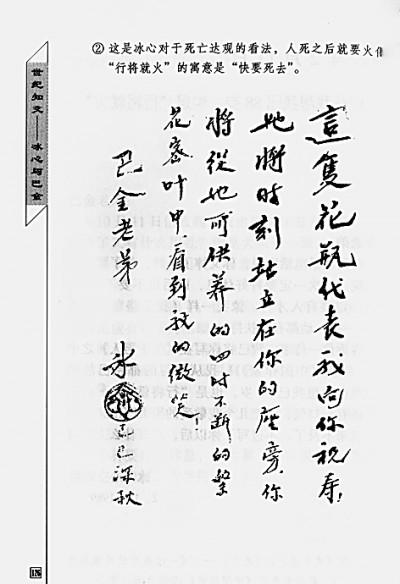 ② 这是冰心对于死亡达观的看法，人死之后就要火
“行将就火”的寓意是“快要死去”。
世纪知交——冰心与巴金
這隻花瓶代表我向你祝寿！
她將时刻站立在你的座旁，你
將從她所供养的四时不断的繁
花密叶中，看到我的微笑！
巴金老弟
冰心
己巳深秋